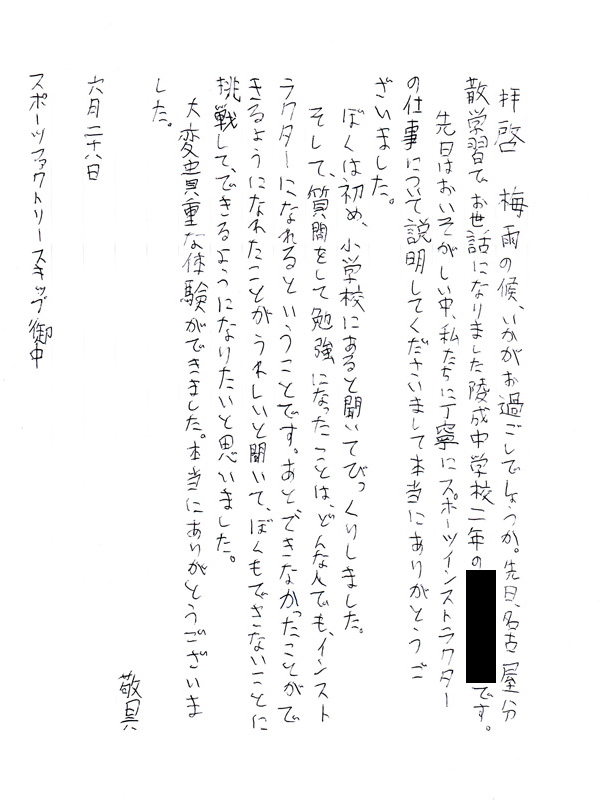 拝啓　梅雨の候、いかがお過ごしでしょうか。先日、名古屋分
散学習でお世話になりました陵成中学校二年の
です。
先日はおいそがしい中、私たちに丁寧にスポーツインストラクター
の仕事について説明してくださいまして本当にありがとうご
ざいました。
ぼくは初め、小学校にあると聞いてびっくりしました。
そして、質問をして勉強になったことは、どんな人でも、インスト
ラクターになれるということです。あとできなかったことがで
きるようになれたことがうれしいと聞いて、ぼくもできないことに
挑戦して、できるようになりたいと思いました。
大変貴重な体験ができました。本当にありがとうございま
した。
敬具
六月二十八日
スポーツファクトリースキップ御中